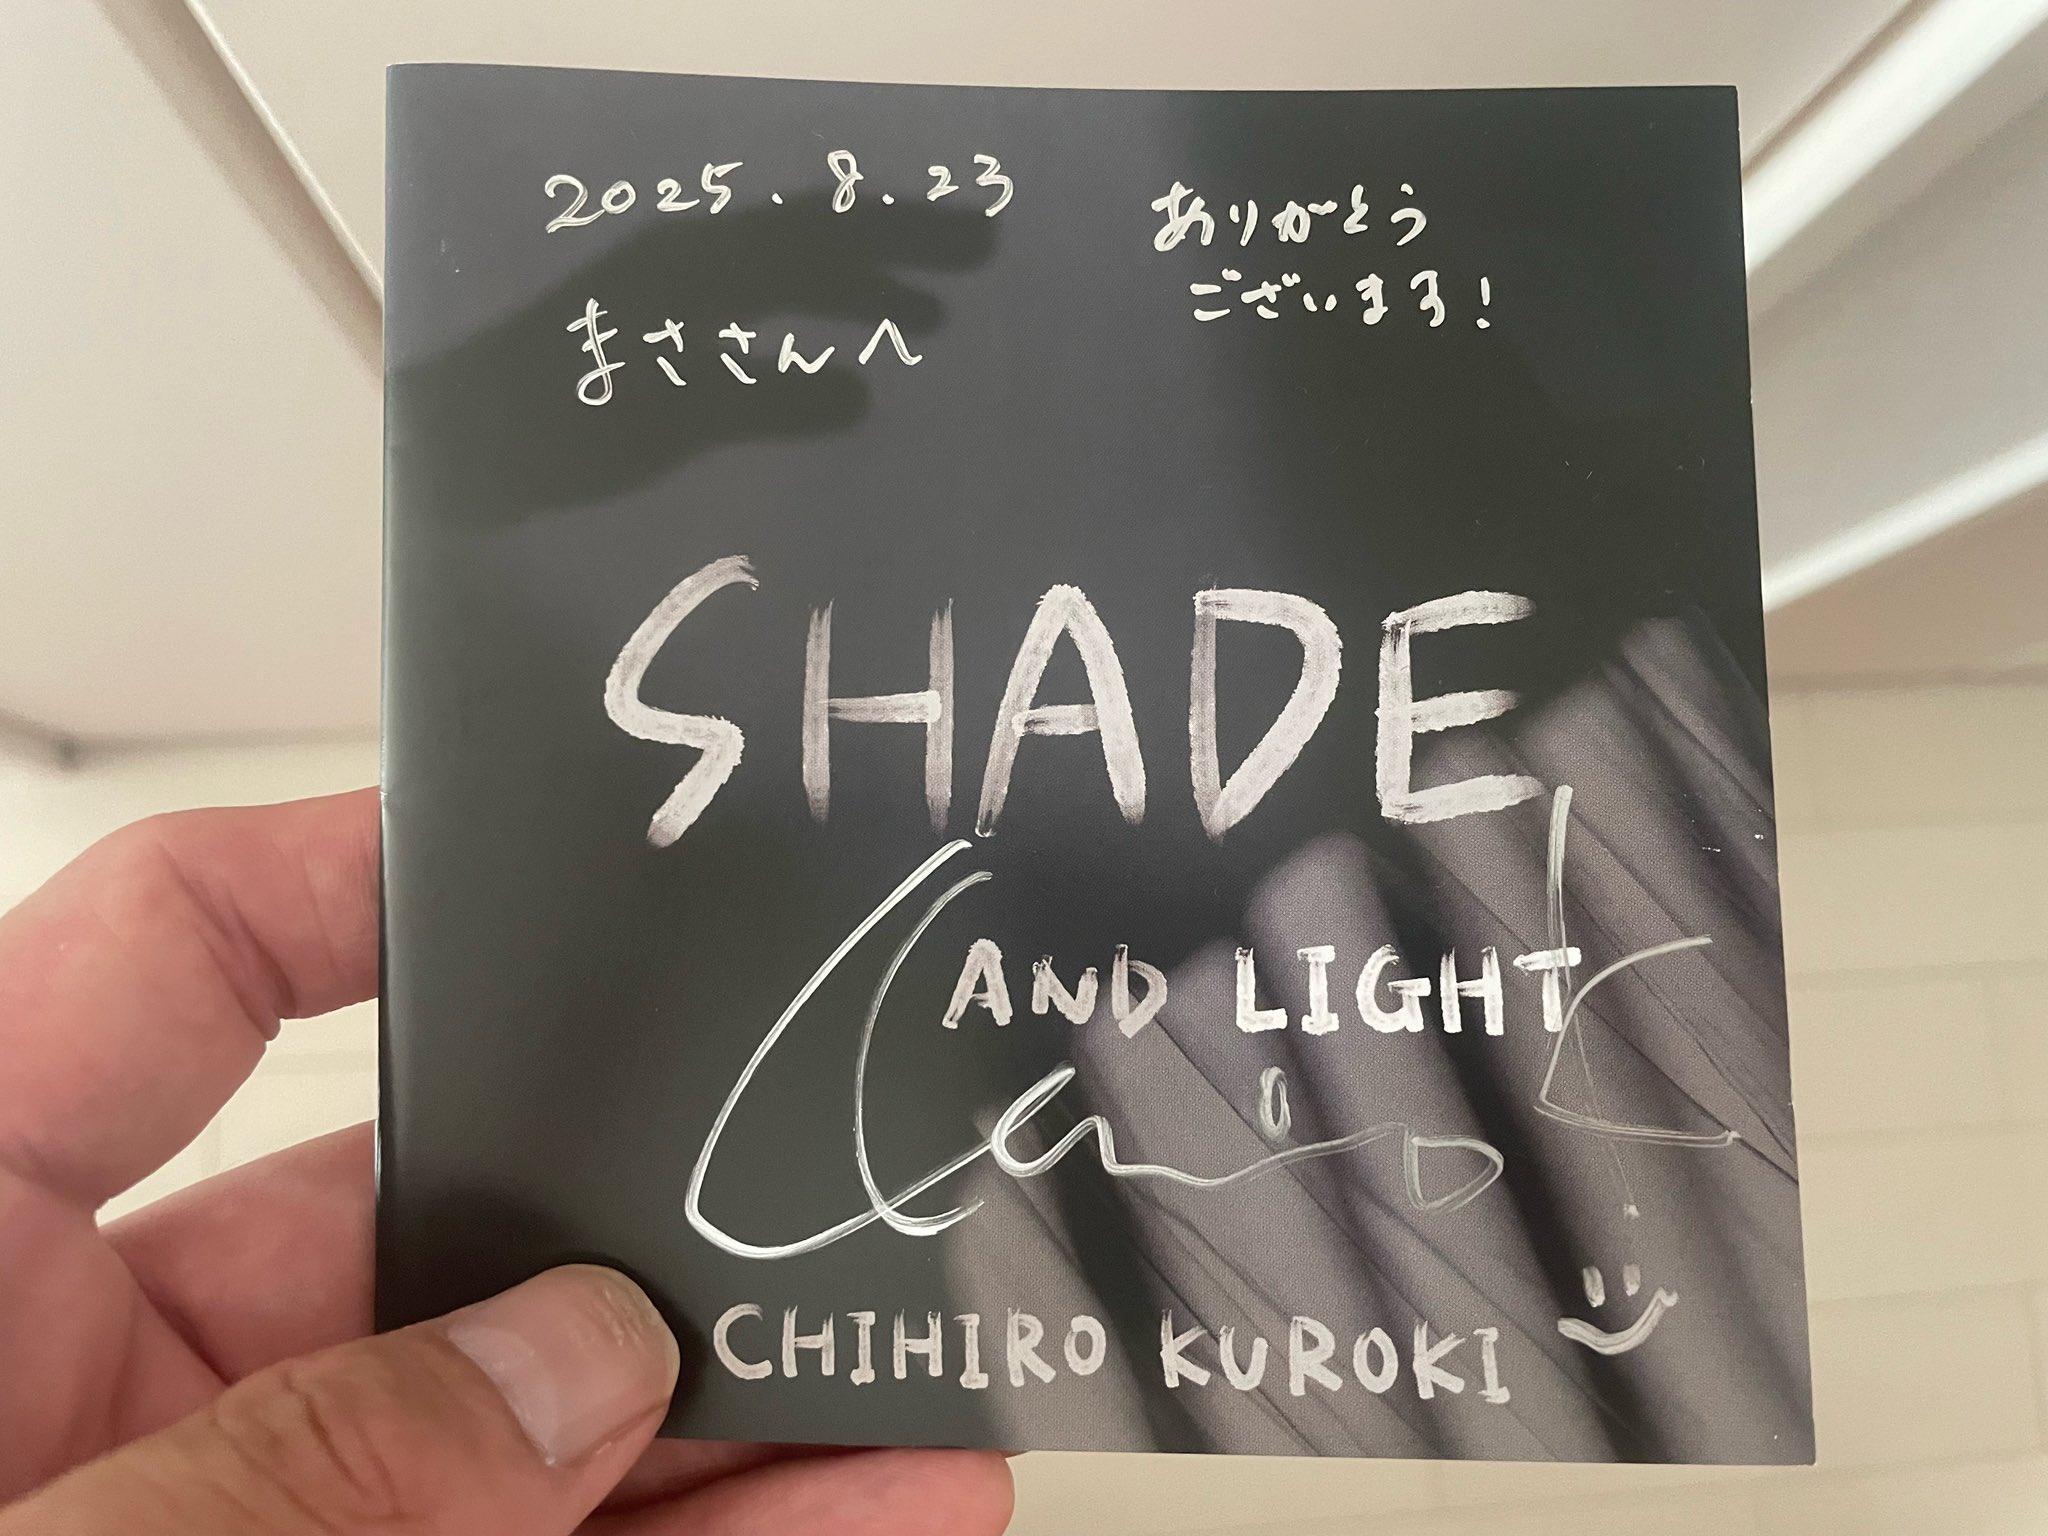 2025.8.23
まささんへ
ありがとう
ございます!
SHADE
AND LIGHT
CHIHIRO KUROKI